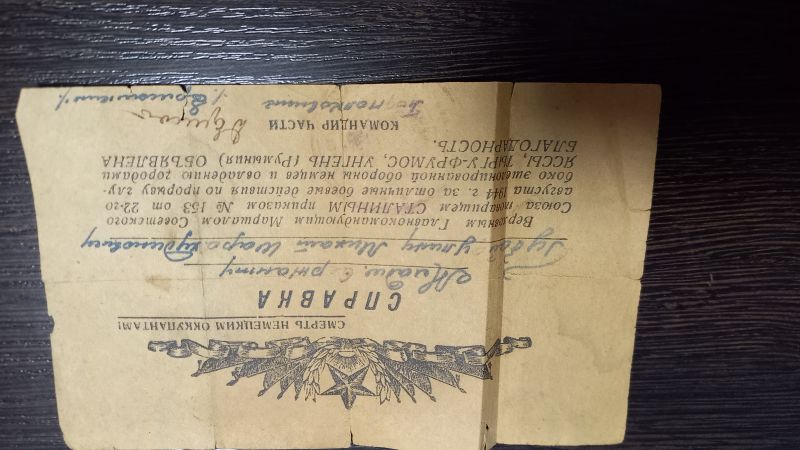 СМЕРТЬ НЕМЕЦКИМ ОККУПАНТАМ!
СПРАВКА
Младш. Сержанту
Михаил
Верховным Главнокомандующим Маршалом Советского
Союза товарищем СТАЛИНЫМ приказом № 153 от 22-го
августа 1944 г. за отличные боевые действия по прорыву глу-
боко эшелонированной обороны немцев и овладению городами
ЯССЫ, ТЫРГУ-ФРУМОС, УНГЕНЬ (Румыния) ОБЪЯВЛЕНА
БЛАГОДАРНОСТЬ.
КОМАНДИР ЧАСТИ
Подполковник